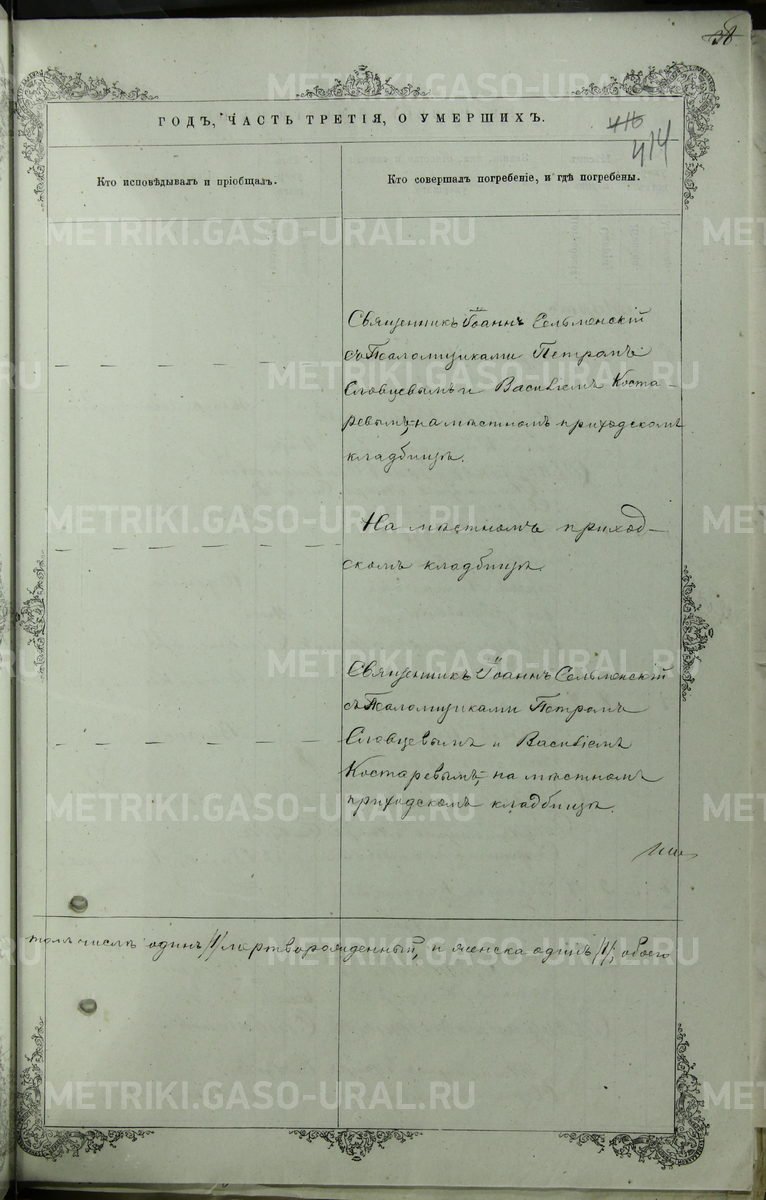 38
ГОДЪ, ЧАСТЬ ТРЕТІЯ, О УМЕРШИХЪ.
416
414
Кто исповѣдывалъ и пріобщалъ.
Кто совершалъ погребеніе, и гдѣ погребены.
Священникъ Іоаннъ Сельменскій
съ Псаломщиками Петромъ
Словцевымъ и Василіемъ Коста-
ревымъ, на мѣстномъ приходскомъ
кладбищѣ.
На мѣстномъ приход-
скомъ кладбищѣ.
Священникъ Іоаннъ Сельменскій
съ Псаломщиками Петромъ
Словцевымъ и Василіемъ
Костаревымъ, на мѣстномъ
приходскомъ кладбищѣ.
томъ числѣ одинъ /1/ мертворожденный, и женска одинъ /1/, обоего
METRIKI.GASO-URAL.RU